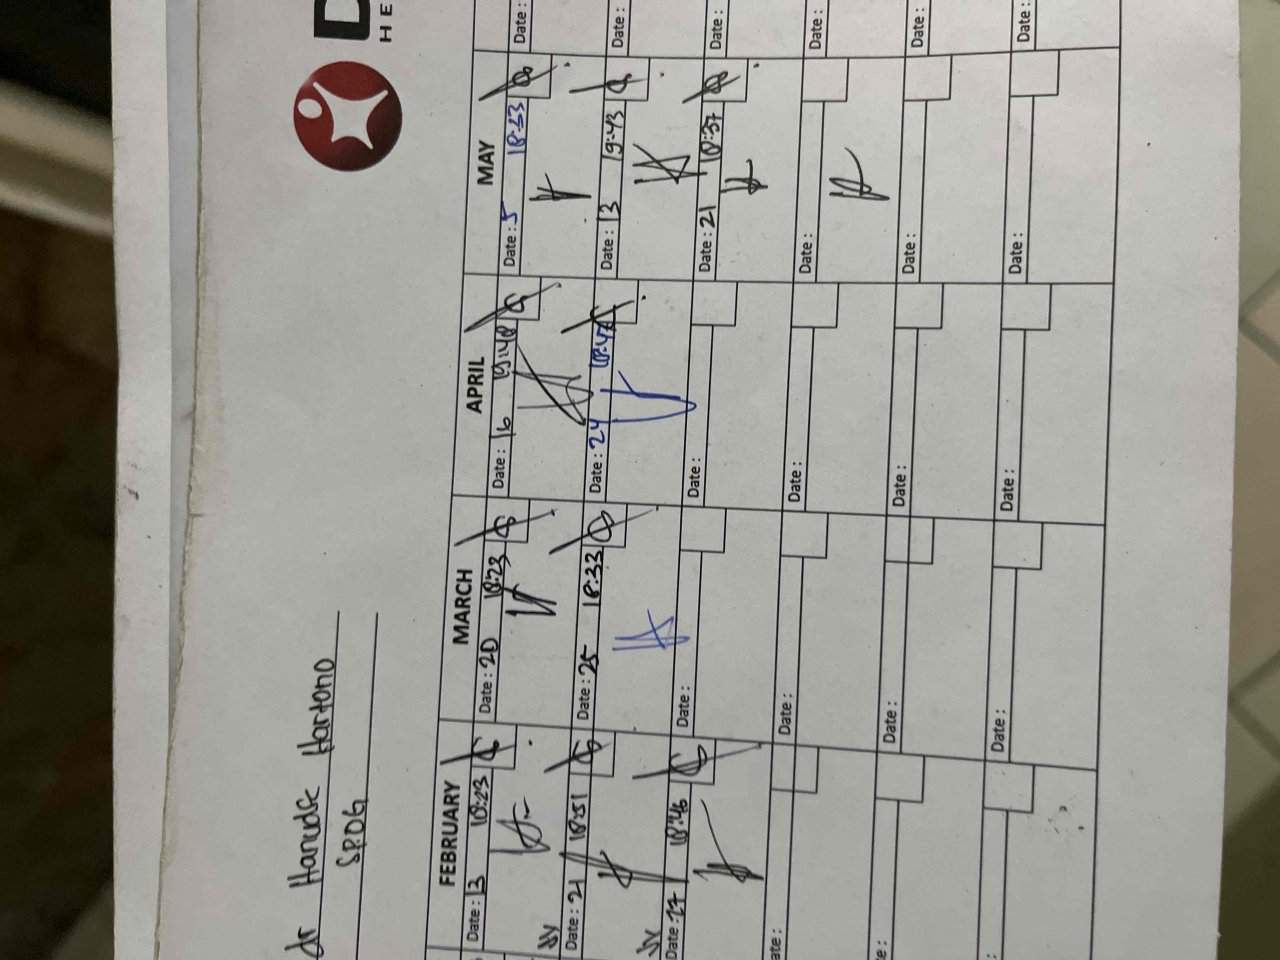 D
HE
dr Hanudse Hartono
SPOG
FEBRUARY MARCH APRIL MAY
Date: 13 18:23
Date: 20 18:23
Date: 16 19:48
Date: 5 18:53
Date:
Date: 21 18:51
Date: 25 18:33
Date: 24
Date: 13 19:43
Date:
Date: 27 18:46
Date:
Date:
Date: 21 18:37
Date:
ate:
Date:
Date:
Date:
Date:
e:
Date:
Date:
Date:
Date:
:
Date:
Date:
Date:
Date: